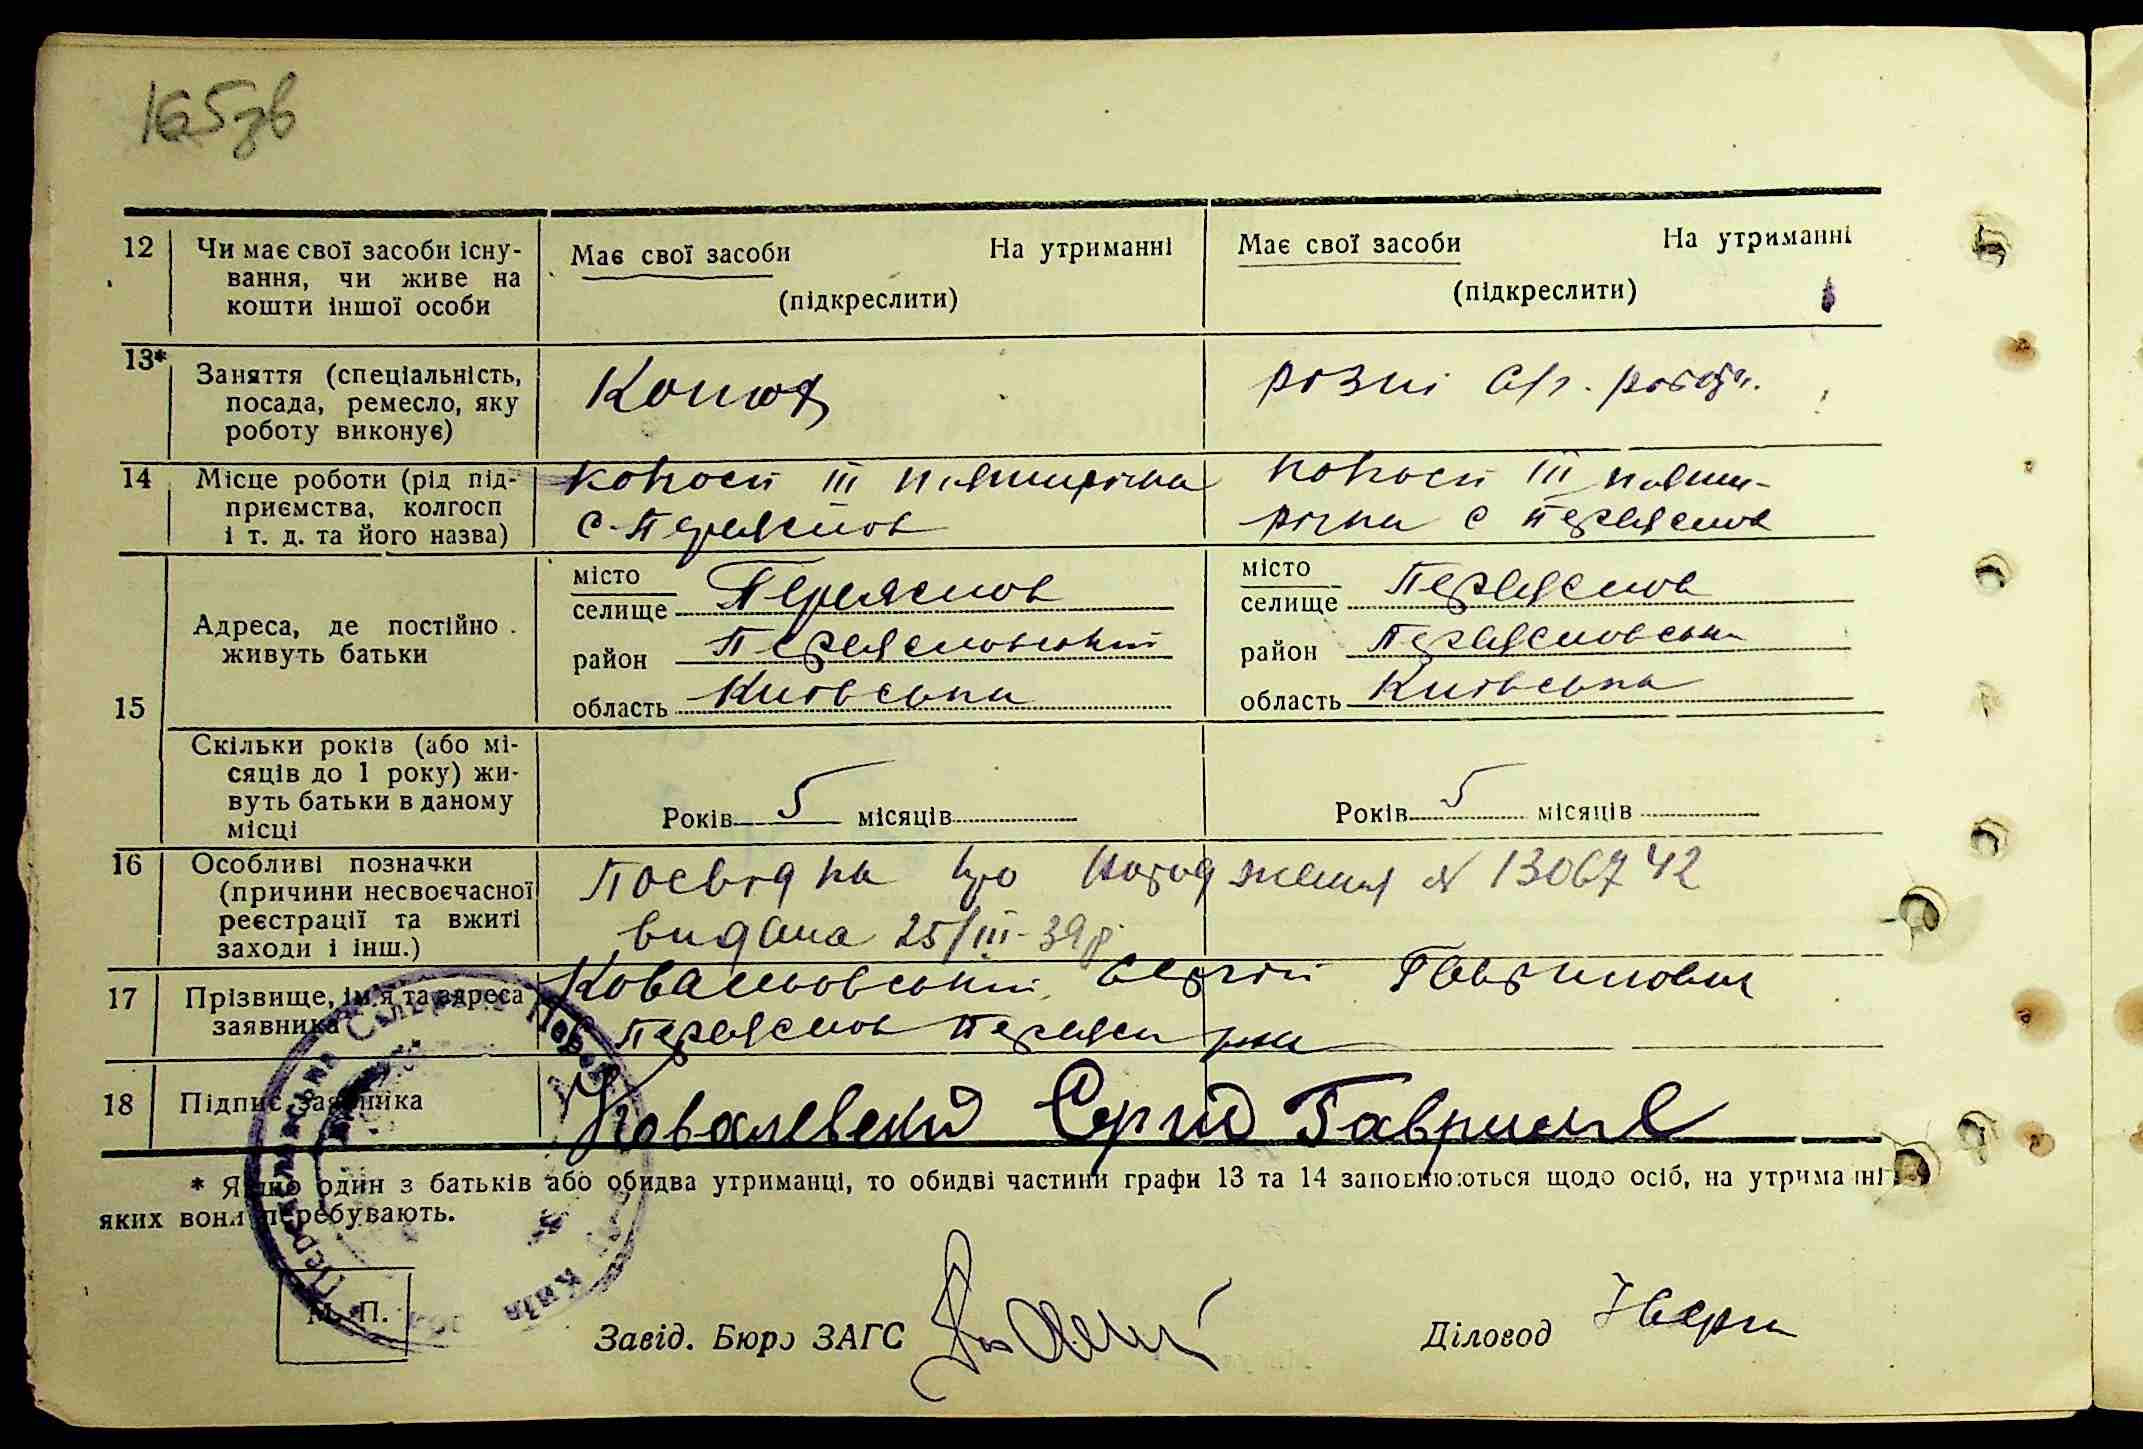 165зв
12 Чи має свої засоби існу-
вання, чи живе на
кошти іншої особи
Має свої засоби На утриманні
(підкреслити)
Має свої засоби На утриманні
(підкреслити)
13* Заняття (спеціальність,
посада, ремесло, яку
роботу виконує)
Конюх
різні с/г. робот.
14 Місце роботи (рід під-
приємства, колгосп
і т. д. та його назва)
Колгосп ІІІ П'ятирічка
с. Переяслов
Колгосп ІІІ П'яти-
річка с Переяслов
15 Адреса, де постійно
живуть батьки
місто
селище Переяслов
район Переясловський
область Київська
місто
селище Переяслов
район Переясловськ
область Київська
Скільки років (або мі-
сяців до 1 року) жи-
вуть батьки в даному
місці
Років 5 місяців
Років 5 місяців
16 Особливі позначки
(причини несвоєчасної
реєстрації та вжиті
заходи і інш.)
Посвідка про народження № 1306742
видана 25/III-39р
17 Прізвище, ім'я та адреса
заявника
Ковальовський Сергій Гаврилович
Переяслов Переясл р-на
18 Підпис заявника
Ковалевский Сергій Гаврилов
* Якщо один з батьків або обидва утриманці, то обидві частини графи 13 та 14 заповнюються щодо осіб, на утриманні
яких вони перебувають.
М. П.
Завід. Бюро ЗАГС
Діловод